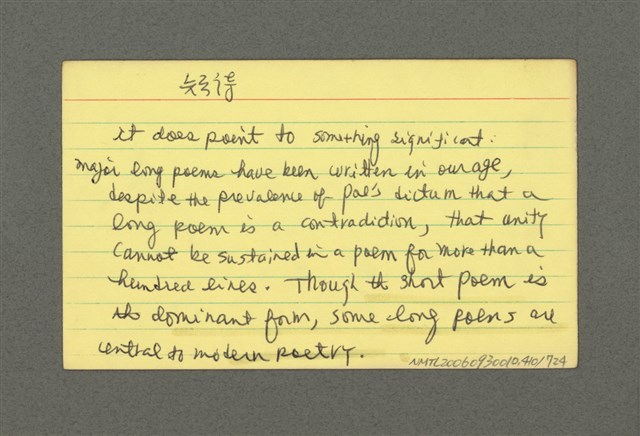 it does point to something significant:
major long poems have been written in our age,
despite the prevalence of Poe's dictum that a
long poem is a contradiction, that unity
cannot be sustained in a poem for more than a
hundred lines. Though the short poem is
the dominant form, some long poems are
central to modern poetry.
NMTL20060930010.410/724